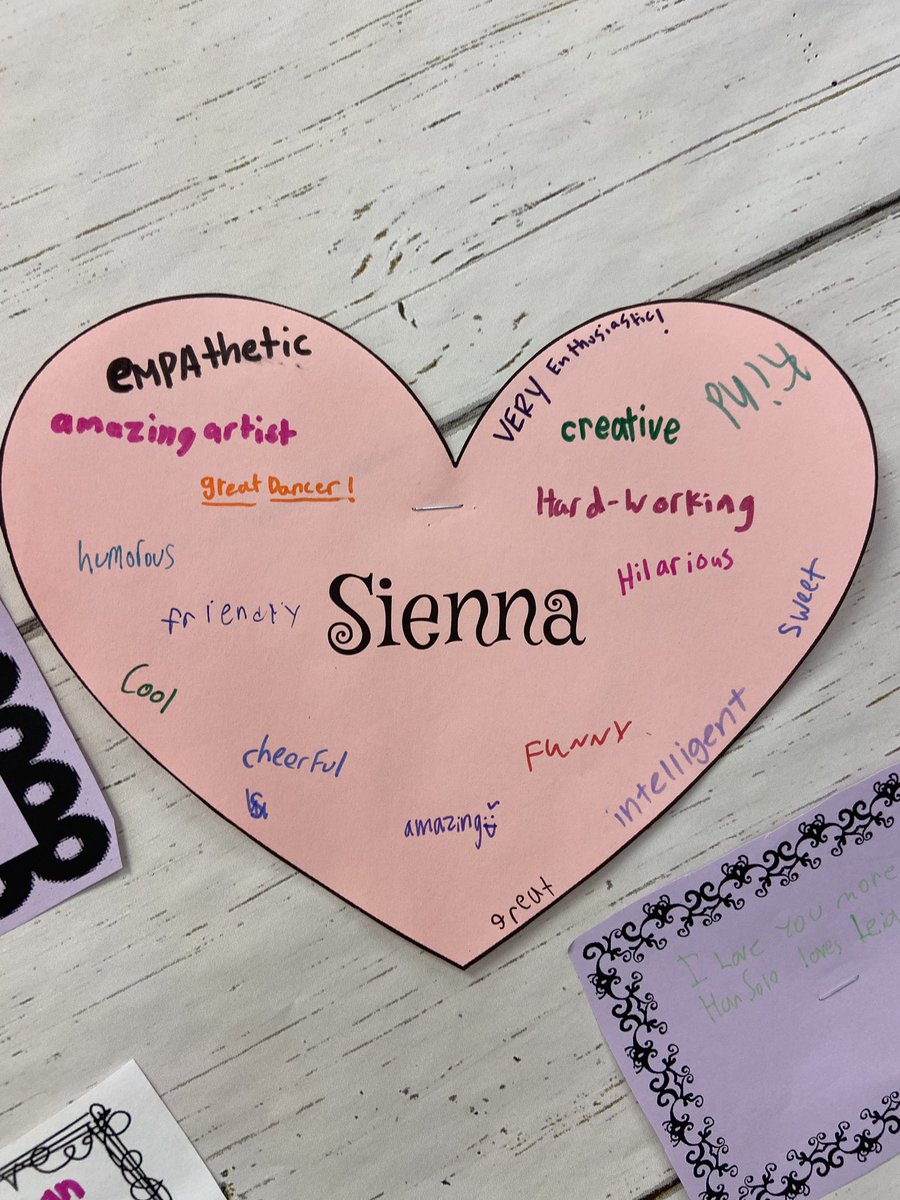 eMPAthetic
amazing artist
great Dancer!
humorous
friendly
Cool
cheerful
VERY Enthusiastic!
creative
Hard-working
Hilarious
sweet
Sienna
FUNNY
intelligent
amazing
great
I Love You more
Han Solo loves Leia
an